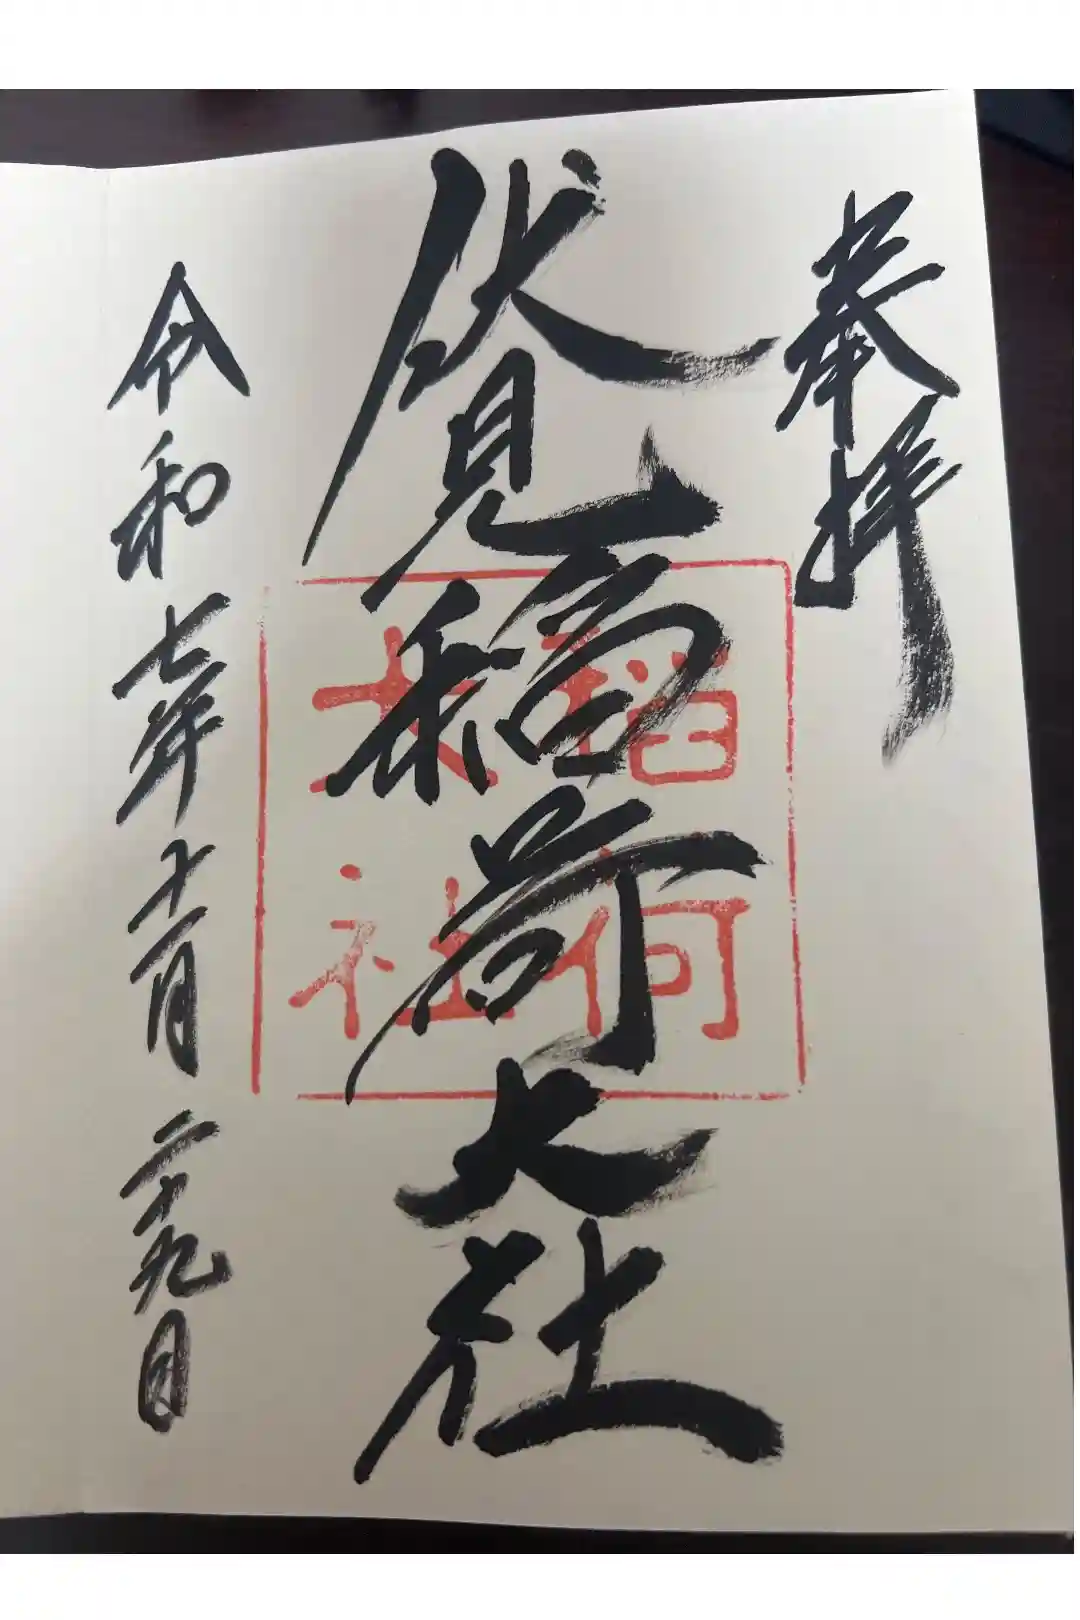 奉拝
伏見稲荷大社
稲荷
大社
令和七年十一月二十九日